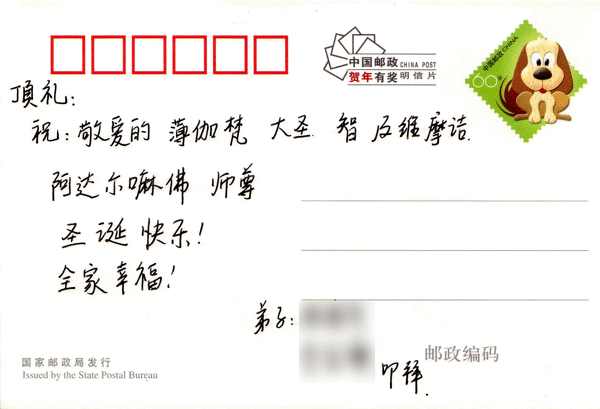 中国邮政 CHINA POST
贺年有奖 明信片
中国邮政 CHINA
60分
頂礼：
祝：敬爱的 薄伽梵 大圣 智 及维摩诘
阿达尔嘛佛 师尊
圣诞快乐！
全家幸福！
弟子：
叩拜
邮政编码
国家邮政局发行
Issued by the State Postal Bureau